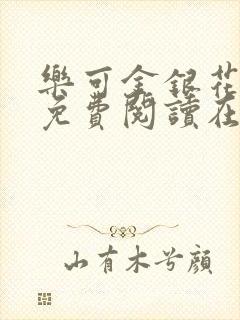 樂可金銀花
免費閱讀在
山有木兮顏